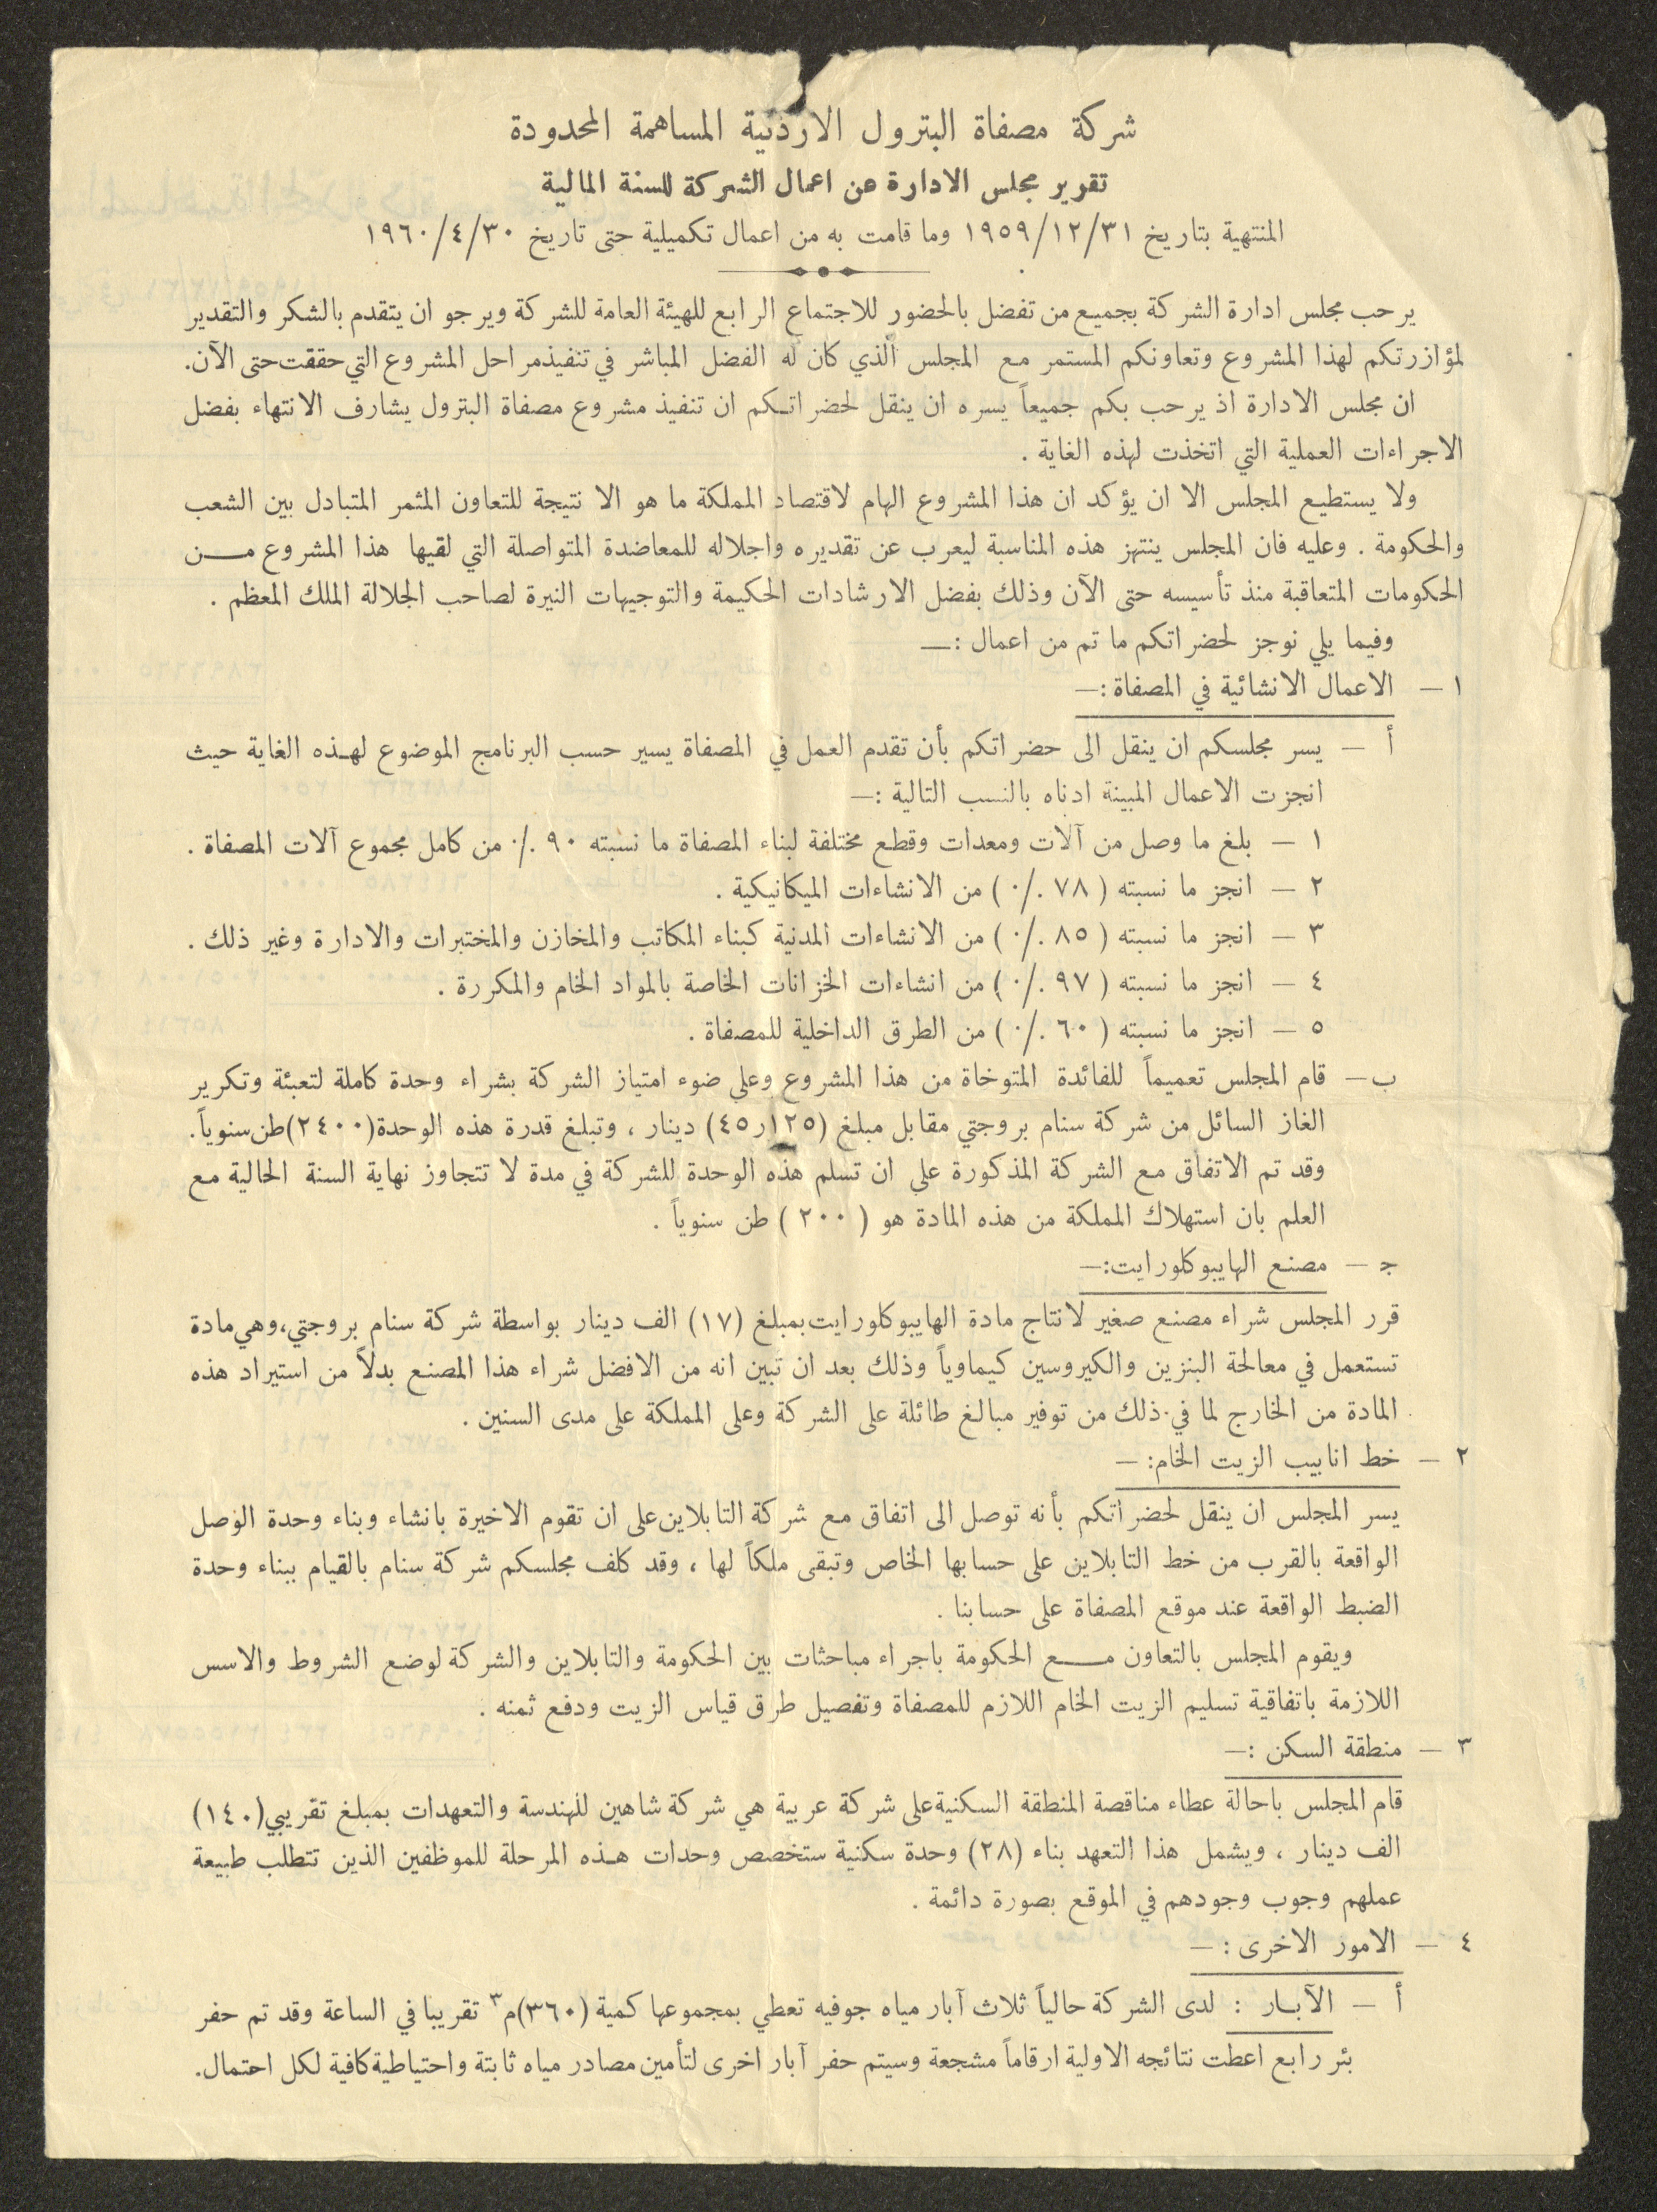 شركة مصفاة البترول الاردنية المساهمة المحدودة
تقرير مجلس الادارة عن اعمال الشركة للسنة المالية
المنتهية بتاريخ ١٩٥٩/١٢/٣١ وما قامت به من اعمال تكميلية حتى تاريخ ١٩٦٠/٤/٣٠
يرحب مجلس ادارة الشركة بجميع من تفضل بالحضور للاجتماع الرابع للهيئة العامة للشركة ويرجو ان يتقدم بالشكر والتقدير
لمؤازرتكم لهذا المشروع وتعاونكم المستمر مع المجلس الذي كان له الفضل المباشر في تنفيذ مراحل المشروع التي حققت حتى الآن.
ان مجلس الادارة اذ يرحب بكم جميعاً يسره ان ينقل لحضراتكم ان تنفيذ مشروع مصفاة البترول يشارف الانتهاء بفضل
الاجراءات العملية التي اتخذت لهذه الغاية .
ولا يستطيع المجلس الا ان يؤكد ان هذا المشروع الهام لاقتصاد المملكة ما هو الا نتيجة للتعاون المثمر المتبادل بين الشعب
والحكومة . وعليه فان المجلس ينتهز هذه المناسبة ليعرب عن تقديره واجلاله للمعاضدة المتواصلة التي لقيها هذا المشروع من
الحكومات المتعاقبة منذ تأسيسه حتى الآن وذلك بفضل الارشادات الحكيمة والتوجيهات النيرة لصاحب الجلالة الملك المعظم .
وفيما يلي نوجز لحضراتكم ما تم من اعمال :—
١ — الاعمال الانشائية في المصفاة :—
أ — يسر مجلسكم ان ينقل الى حضراتكم بأن تقدم العمل في المصفاة يسير حسب البرنامج الموضوع لهذه الغاية حيث
انجزت الاعمال المبينة ادناه بالنسب التالية :—
١ — بلغ ما وصل من آلات ومعدات وقطع مختلفة لبناء المصفاة ما نسبته ٩٠ ./· من كامل مجموع آلات المصفاة .
٢ — انجز ما نسبته ( ٧٨ ./· ) من الانشاءات الميكانيكية .
٣ — انجز ما نسبته ( ٨٥ ./· ) من الانشاءات المدنية كبناء المكاتب والمخازن والمختبرات والادارة وغير ذلك .
٤ — انجز ما نسبته ( ٩٧ ./· ) من انشاءات الخزانات الخاصة بالمواد الخام والمكررة .
٥ — انجز ما نسبته ( ٦٠ ./· ) من الطرق الداخلية للمصفاة .
ب — قام المجلس تعميماً للفائدة المتوخاة من هذا المشروع وعلى ضوء امتياز الشركة بشراء وحدة كاملة لتعبئة وتكرير
الغاز السائل من شركة سنام بروجتي مقابل مبلغ (١٢٥ر٤٥) دينار ، وتبلغ قدرة هذه الوحدة (٢٤٠٠) طن سنوياً.
وقد تم الاتفاق مع الشركة المذكورة على ان تسلم هذه الوحدة للشركة في مدة لا تتجاوز نهاية السنة الحالية مع
العلم بان استهلاك المملكة من هذه المادة هو ( ٢٠٠ ) طن سنوياً .
ج — مصنع الهايبوكلورايت:—
قرر المجلس شراء مصنع صغير لانتاج مادة الهايبوكلورايت بمبلغ (١٧) الف دينار بواسطة شركة سنام بروجتي، وهي مادة
تستعمل في معالجة البنزين والكيروسين كيماوياً وذلك بعد ان تبين انه من الافضل شراء هذا المصنع بدلاً من استيراد هذه
المادة من الخارج لما في ذلك من توفير مبالغ طائلة على الشركة وعلى المملكة على مدى السنين .
٢ — خط انابيب الزيت الخام: —
يسر المجلس ان ينقل لحضراتكم بأنه توصل الى اتفاق مع شركة التابلاين على ان تقوم الاخيرة بانشاء وبناء وحدة الوصل
الواقعة بالقرب من خط التابلاين على حسابها الخاص وتبقى ملكاً لها ، وقد كلف مجلسكم شركة سنام بالقيام ببناء وحدة
الضبط الواقعة عند موقع المصفاة على حسابنا .
ويقوم المجلس بالتعاون مع الحكومة باجراء مباحثات بين الحكومة والتابلاين والشركة لوضع الشروط والاسس
اللازمة باتفاقية تسليم الزيت الخام اللازم للمصفاة وتفصيل طرق قياس الزيت ودفع ثمنه .
٣ — منطقة السكن :—
قام المجلس باحالة عطاء مناقصة المنطقة السكنية على شركة عربية هي شركة شاهين للهندسة والتعهدات بمبلغ تقريبي (١٤٠)
الف دينار ، ويشمل هذا التعهد بناء (٢٨) وحدة سكنية ستخصص وحدات هذه المرحلة للموظفين الذين تتطلب طبيعة
عملهم وجوب وجودهم في الموقع بصورة دائمة .
٤ — الامور الاخرى : —
أ — الآبار : لدى الشركة حالياً ثلاث آبار مياه جوفيه تعطي بمجموعها كمية (٣٦٠) م٣ تقريبا في الساعة وقد تم حفر
بئر رابع اعطت نتائجه الاولية ارقاماً مشجعة وسيتم حفر آبار اخرى لتأمين مصادر مياه ثابتة واحتياطية كافية لكل احتمال.